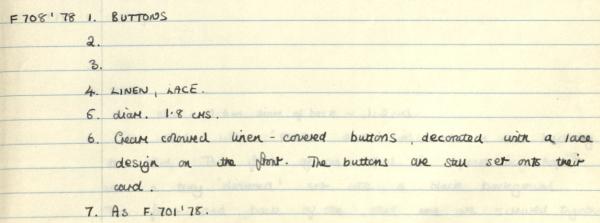 F708'78 1. BUTTONS
2.
3.
4. LINEN, LACE.
5. diam. 1.8 cms.
6. Cream coloured linen - covered buttons, decorated with a lace
design on the front. The buttons are still set onto their
card.
7. As F.701'78.